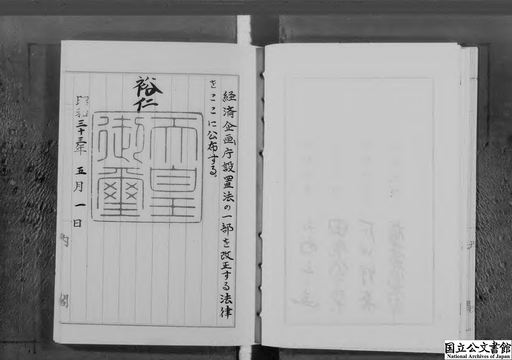 経済企画庁設置法の一部を改正する法律
をここに公布する。
裕仁
天皇
御璽
昭和三十三年 五月 一日
内閣
国立公文書館
National Archives of Japan